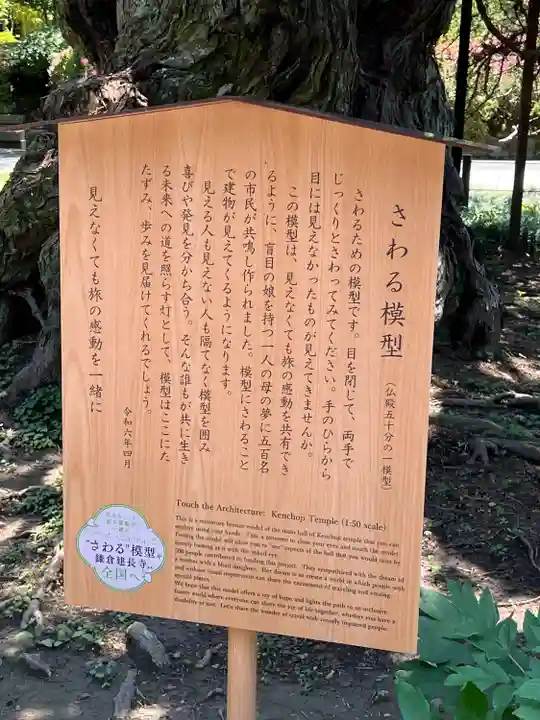 さわる模型
（仏殿五十分の一模型）
さわるための模型です。目を閉じて、両手で
じっくりとさわってみてください。手のひらから
目には見えなかったものが見えてきませんか。
この模型は、見えなくても旅の感動を共有でき
るように、盲目の娘を持つ一人の母の夢に五百名
の市民が共鳴し作られました。模型にさわること
で建物が見えてくるようになります。
見える人も見えない人も隔てなく模型を囲み
喜びや発見を分かち合う。そんな誰もが共に生き
る未来への道を照らす灯として、模型はここにた
たずみ、歩みを見届けてくれるでしょう。
見えなくても旅の感動を一緒に
令和六年四月
Touch the Architecture: Kenchop Temple (1:50 scale)
This is a miniature bronze model of the main hall of Kenchop temple that you can
explore using your hands. Take a moment to close your eyes and touch the model.
Feeling the model will allow you to "see" aspects of the hall that you would miss
simply by looking at it with the naked eye.
500 people contributed to funding this project. They sympathized with the dream of
a mother with a blind daughter. Her dream is to create a world in which people with
and without visual impairment can share the excitement of traveling and visiting
special places.
We hope that this model offers a ray of hope and lights the path to an inclusive
future world where everyone can share the joy of life together, whether you have a
disability or not. Let's share the wonder of travel with visually impaired people.
"さわる"模型
鎌倉建長寺
全国へ